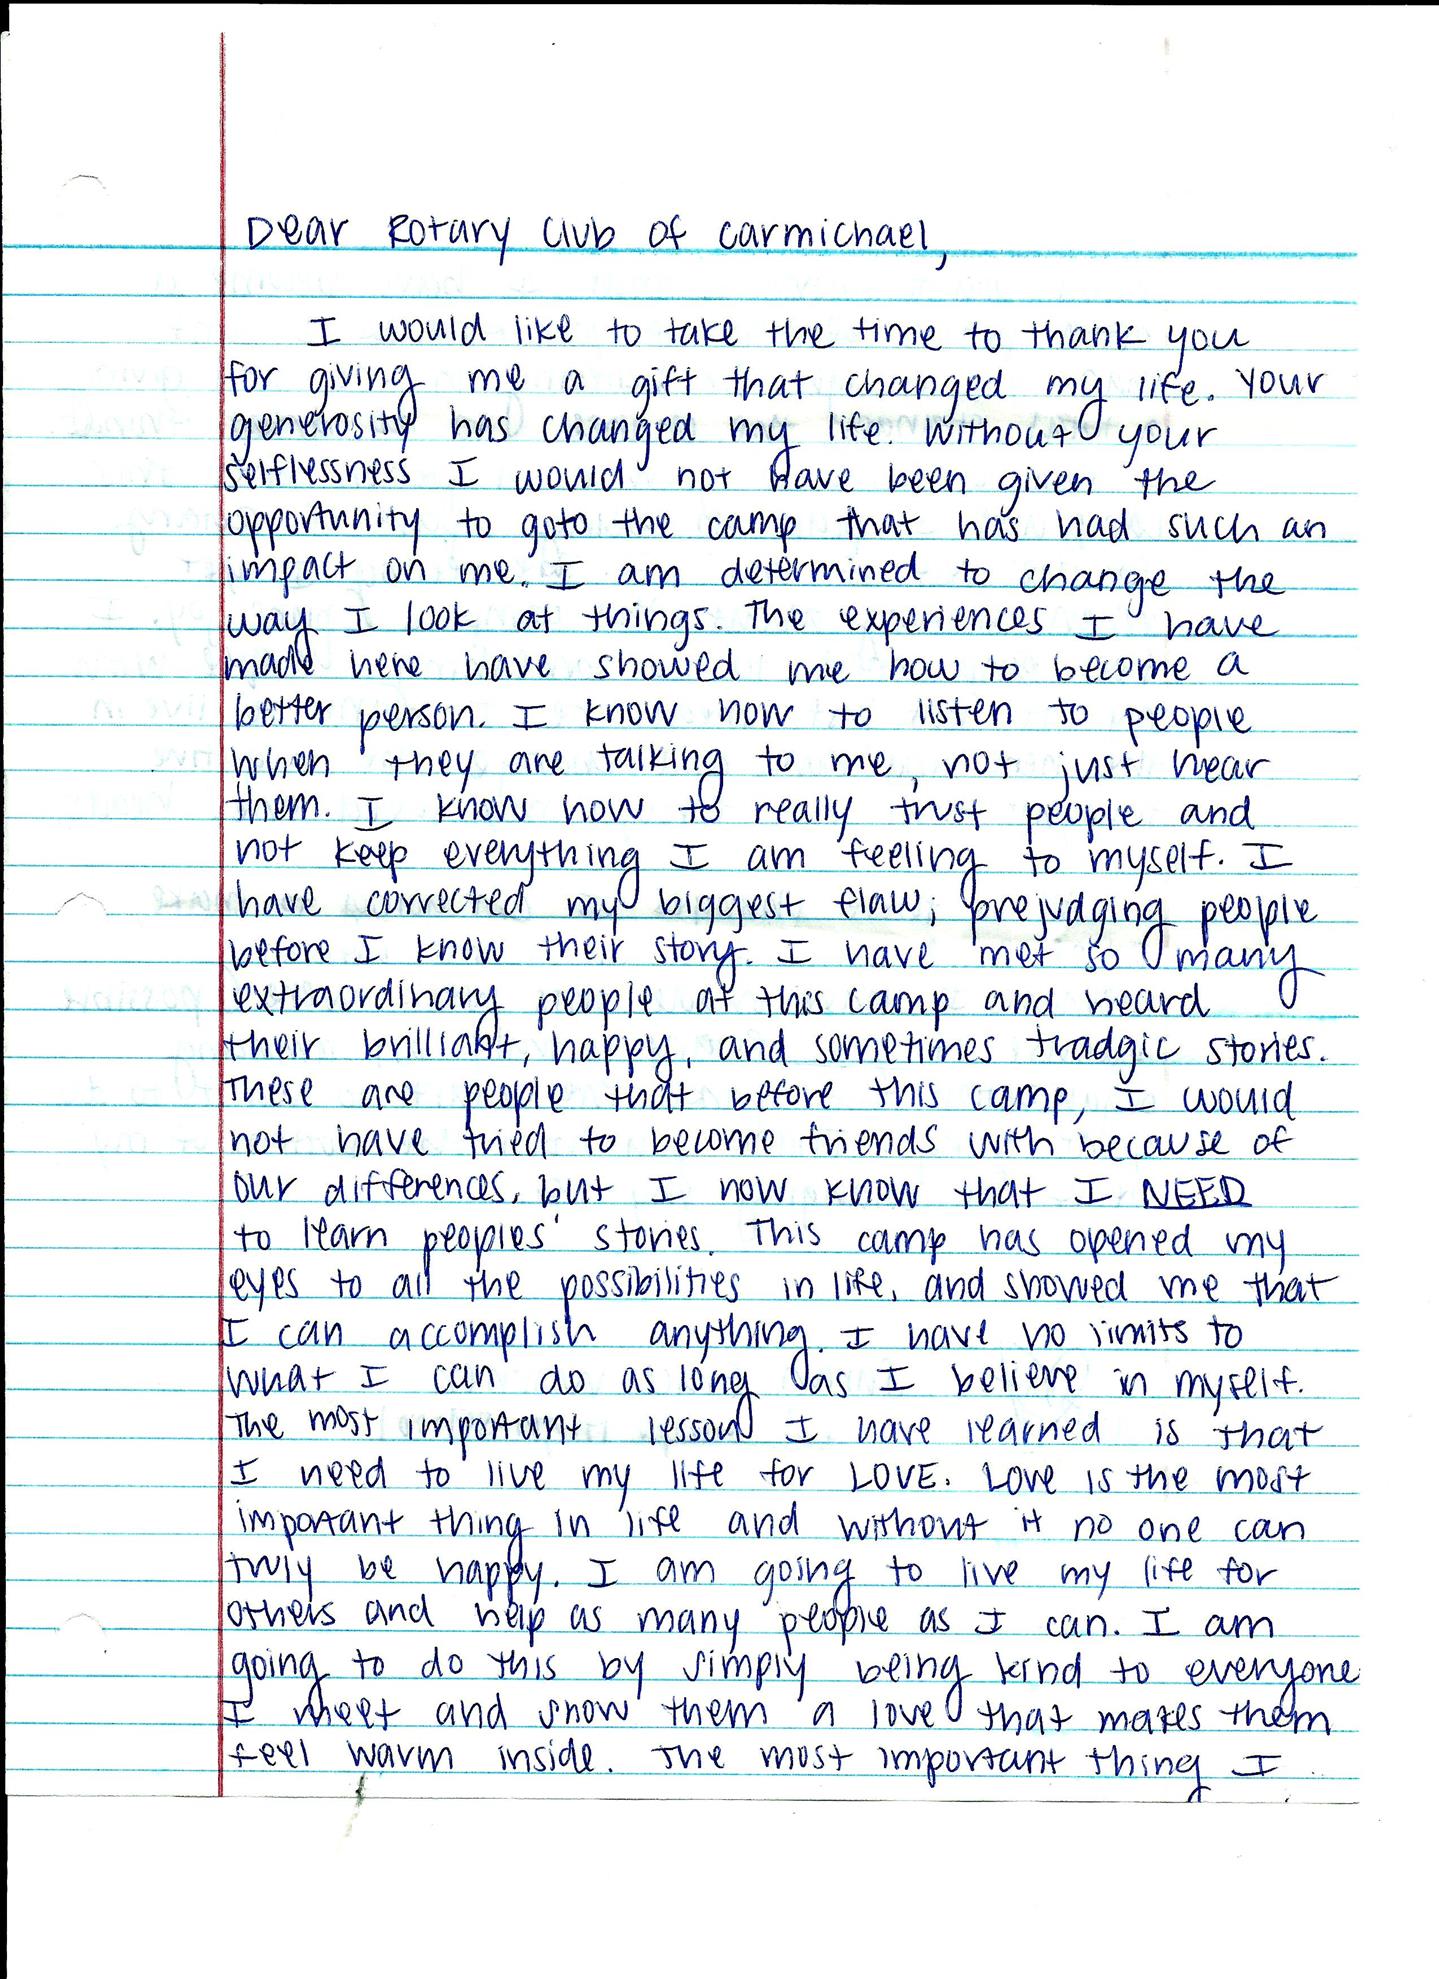 Dear Rotary Club of Carmichael,
I would like to take the time to thank you
for giving me a gift that changed my life. Your
generosity has changed my life. Without your
selflessness I would not have been given the
opportunity to goto the camp that has had such an
impact on me. I am determined to change the
way I look at things. The experiences I have
made here have showed me how to become a
better person. I know how to listen to people
when they are talking to me, not just hear
them. I know how to really trust people and
not keep everything I am feeling to myself. I
have corrected my biggest flaw; prejudging people
before I know their story. I have met so many
extraordinary people at this camp and heard
their brilliant, happy, and sometimes tradgic stories.
These are people that before this camp, I would
not have tried to become friends with because of
our differences, but I now know that I NEED
to learn peoples' stories. This camp has opened my
eyes to all the possibilities in life, and showed me that
I can accomplish anything. I have no limits to
what I can do as long as I believe in myself.
The most important lesson I have learned is that
I need to live my life for LOVE. Love is the most
important thing in life and without it no one can
truly be happy. I am going to live my life for
others and help as many people as I can. I am
going to do this by simply being kind to everyone
I meet and show them a love that makes them
feel warm inside. The most important thing I